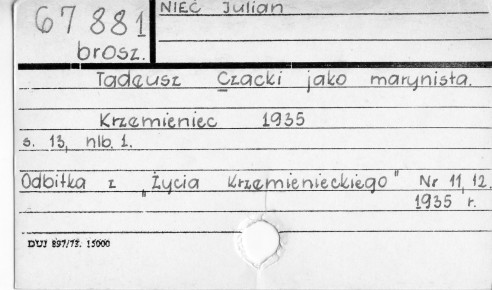 67 881
NIEĆ Julian
brosz.
Tadeusz Czacki jako marynista.
Krzemieniec 1935
s. 13, nlb. 1.
Odbitka z „Życia Krzemienieckiego" Nr 11, 12.
1935 r.
DUJ 897/72. 15000